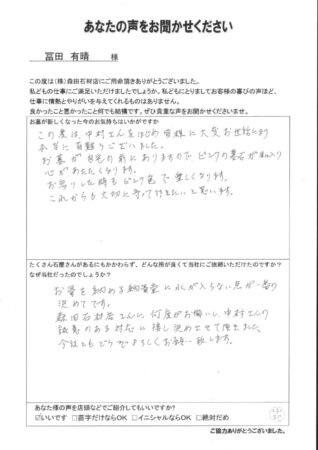 あなたの声をお聞かせください
冨田 有晴 様
この度は(株)森田石材店にご用命頂きありがとうございました。
私どもの仕事にご満足いただけましたでしょうか。私どもにとりましてお客様の喜びの声ほど、
仕事に情熱とやりがいを与えてくれるものはありません。
良かったこと悪かったこと何でも結構です。ぜひ貴重な声をお聞かせくださいませ。
お墓が新しくなった今のお気持ちはいかがですか
この度は、中村さんをはじめ皆様に大変お世話になり
本当に有難うございました。
お墓が自宅の前にありますので、ピンクの墓石が目に入り
心があたたくなります。
お参りした時もピンク色で楽しくなります。
これからも大切に守って行きたいと思います。
たくさん石屋さんがあるにもかかわらず、どんな所が良くて当社にご依頼いただけたのですか?
なぜ当社だったのでしょうか?
お骨を納める納骨室に水が入らない点が一番の
決めてです。
森田石材店さんに何度かお伺いし、中村さんの
誠意のある対応に接し決めさせて頂きました。
今後ともどうぞよろしくお願い致します。
あなた様の声を店頭などでご紹介してもいいですか?
☑いいです □苗字だけならOK □イニシャルならOK □絶対だめ
ご協力ありがとうございました。